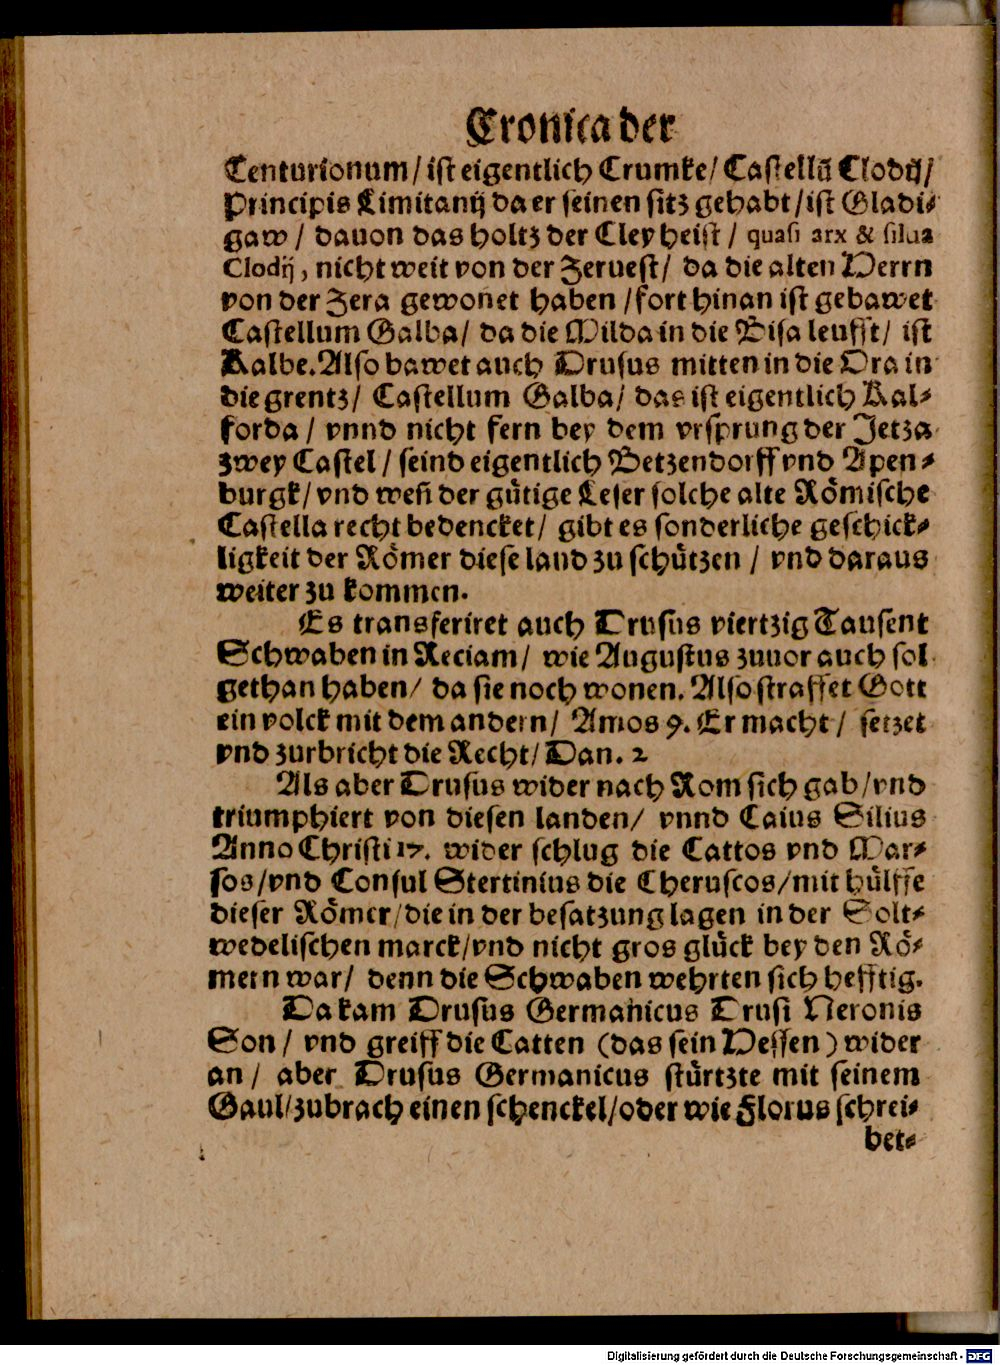 Cronica der
Centurionum/ ist eigentlich Crumke/ Castellũ Clodij/
Principis Limitanij da er seinen sitz gehabt/ ist Gladi⸗
gaw / dauon das holtz der Cley heist / quasi arx & silua
Clodij, nicht weit von der Zeruest/ da die alten Herrn
von der Zera gewonet haben /fort hinan ist gebawet
Castellum Galba/ da die Milda in die Bisa leufft/ ist
Kalbe. Also bawet auch Drusus mitten in die Ora in
die grentz/ Castellum Galba/ das ist eigentlich Kal⸗
forda / vnnd nicht fern bey dem vrsprung der Jetza
zwey Castel / seind eigentlich Betzendorff vnd Apen⸗
burgk/ vnd weñ der gütige Leser solche alte Römische
Castella recht bedencket/ gibt es sonderliche geschick⸗
ligkeit der Römer diese land zu schützen / vnd daraus
weiter zu kommen.
Es transferiret auch Drusus viertzig Tausent
Schwaben in Reciam/ wie Augustus zuuor auch sol
gethan haben/ da sie noch wonen. Also straffet Gott
ein volck mit dem andern/ Amos 9. Er macht / setzet
vnd zurbricht die Recht/ Dan. 2
Als aber Drusus wider nach Rom sich gab/ vnd
triumphiert von diesen landen/ vnnd Caius Silius
Anno Christi 17. wider schlug die Cattos vnd Mar⸗
sos/ vnd Consul Stertinius die Cheruscos/ mit hülffe
dieser Römer/ die in der besatzung lagen in der Solt⸗
wedelischen marck/ vnd nicht gros glück bey den Rö⸗
mern war/ denn die Schwaben wehrten sich hefftig.
Da kam Drusus Germanicus Drusi Neronis
Son / vnd greiff die Catten (das sein Hessen) wider
an / aber Drusus Germanicus stürtzte mit seinem
Gaul/ zubrach einen schenckel/ oder wie Florus schrei⸗
bet⸗
Digitalisierung gefördert durch die Deutsche Forschungsgemeinschaft - DFG